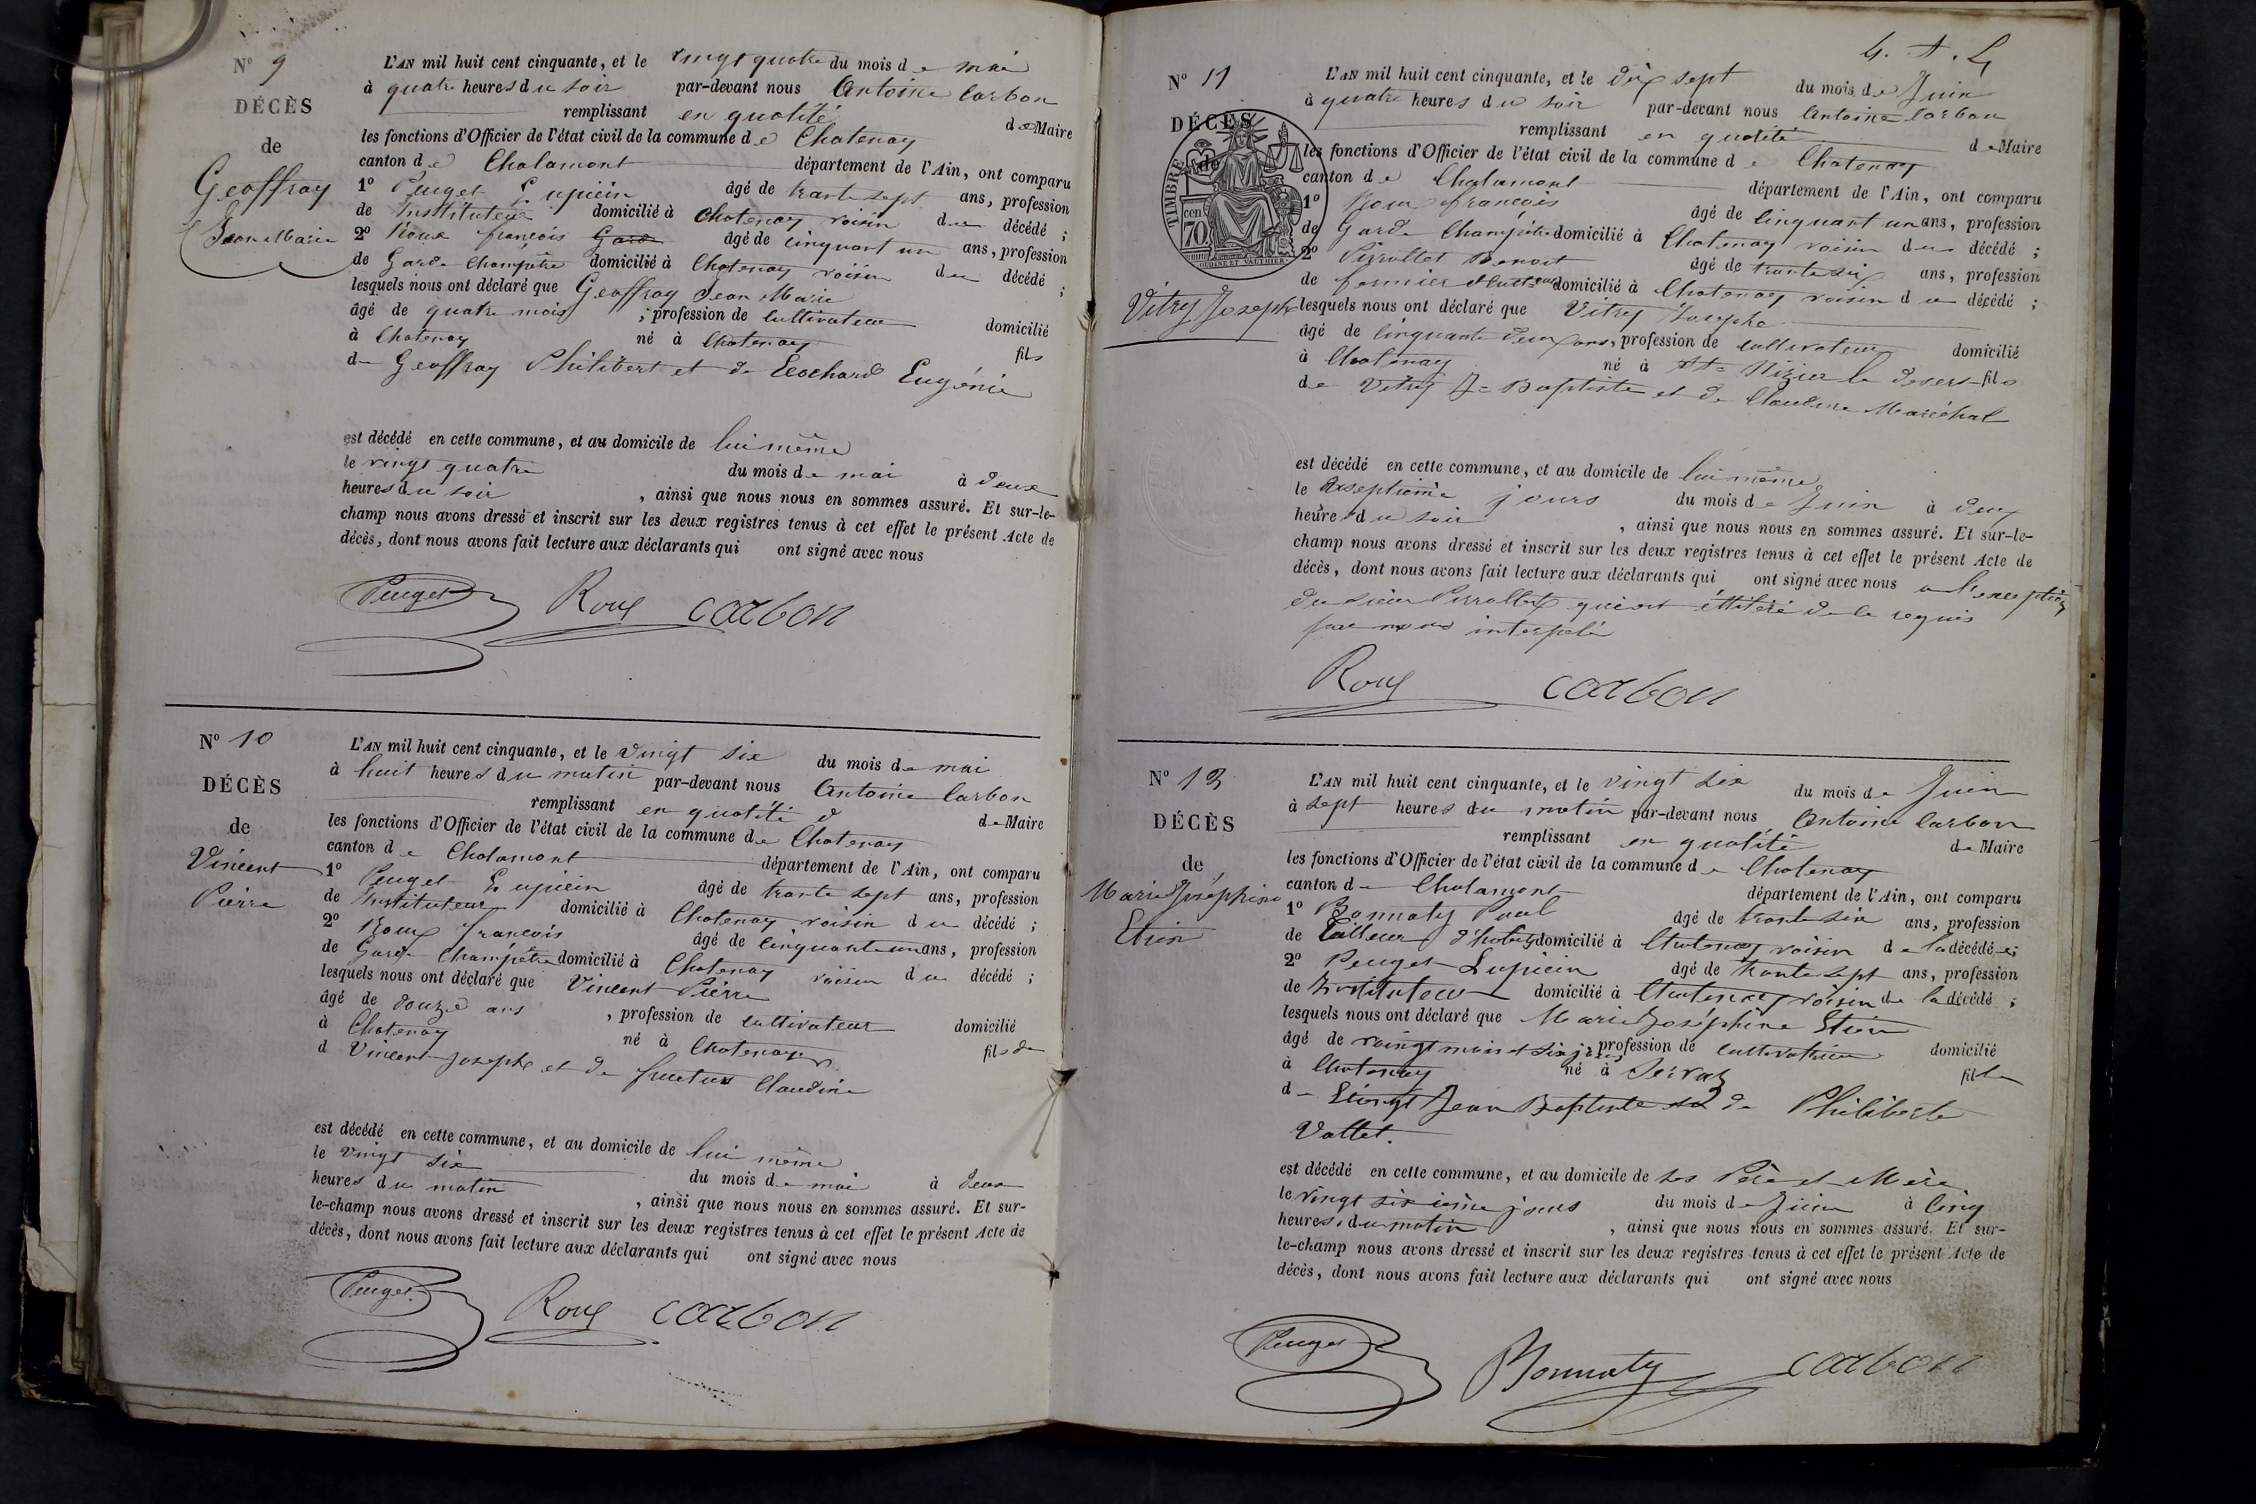 N° 9
DÉCÈS
de
Geoffray
Jean Marie
L'AN mil huit cent cinquante, et le vingt quatre du mois de mai
à quatre heures du soir par-devant nous Antoine Carbon
remplissant en qualité de Maire
les fonctions d'Officier de l'état civil de la commune de Chatenay
canton de Chalamont département de l'Ain, ont comparu
1° Peuget Lupicin âgé de trante sept ans, profession
de Instituteur domicilié à Chatenay voisin du décédé ;
2° Roux françois Garde âgé de cinquant un ans, profession
de Garde Champêtre domicilié à Chatenay voisin du décédé ;
lesquels nous ont déclaré que Geoffray Jean Marie
âgé de quatre mois , profession de cultivateur domicilié
à Chatenay né à Chatenay fils
de Geoffray Philibert et de Eugénie
est décédé en cette commune, et au domicile de lui même
le vingt quatre du mois de mai à deux
heures du soir , ainsi que nous nous en sommes assuré. Et sur-le-
champ nous avons dressé et inscrit sur les deux registres tenus à cet effet le présent Acte de
décès, dont nous avons fait lecture aux déclarants qui ont signé avec nous
Peuget Roux carbon
N° 10
DÉCÈS
de
Vincent
Pierre
L'AN mil huit cent cinquante, et le vingt six du mois de mai
à huit heures du matin par-devant nous Antoine Carbon
remplissant en qualité d de Maire
les fonctions d'Officier de l'état civil de la commune de Chatenay
canton de Chalamont département de l'Ain, ont comparu
1° Peuget Lupicin âgé de trante sept ans, profession
de Instituteur domicilié à Chatenay voisin du décédé ;
2° Roux françois âgé de cinquante un ans, profession
de Garde Champêtre domicilié à Chatenay voisin du décédé ;
lesquels nous ont déclaré que Vincent Pierre
âgé de douze ans , profession de cultivateur domicilié
à Chatenay né à Chatenay fils de
d Vincent Joseph et de Claudine
est décédé en cette commune, et au domicile de lui même
le vingt six du mois de mai à deux
heures du matin , ainsi que nous nous en sommes assuré. Et sur-
le-champ nous avons dressé et inscrit sur les deux registres tenus à cet effet le présent Acte de
décès, dont nous avons fait lecture aux déclarants qui ont signé avec nous
Peuget Roux carbon
N° 11
DÉCÈS
de
TIMBRE
cen
70
OUDINE ET VAUTHIER
Vitry Joseph
L'AN mil huit cent cinquante, et le dix sept du mois de Juin
à quatre heures du soir par-devant nous Antoine Carbon
remplissant en qualité de Maire
les fonctions d'Officier de l'état civil de la commune de Chatenay
canton de Chalamont département de l'Ain, ont comparu
1° Roux françois âgé de cinquant un ans, profession
de Garde Champêtre domicilié à Chatenay voisin du décédé ;
2° Pirrollet Benoit âgé de trante six ans, profession
de fermier domicilié à Chatenay voisin du décédé ;
lesquels nous ont déclaré que Vitry Joseph
âgé de cinquante deux ans, profession de cultivateur domicilié
à Chatenay né à St Nizier le desert fils
de Vitry J= Baptiste et de Claudine Maréchal
est décédé en cette commune, et au domicile de lui même
le jours du mois de Juin à deux
heures du soir , ainsi que nous nous en sommes assuré. Et sur-le-
champ nous avons dressé et inscrit sur les deux registres tenus à cet effet le présent Acte de
décès, dont nous avons fait lecture aux déclarants qui ont signé avec nous a l'exception
du sieur Pirrollet qui est de le requis
par nous interpelé
Roux carbon
N° 13
DÉCÈS
de
Marie Joséphine
Etien
L'AN mil huit cent cinquante, et le vingt six du mois de Juin
à sept heures du matin par-devant nous Antoine Carbon
remplissant en qualité de Maire
les fonctions d'Officier de l'état civil de la commune de Chatenay
canton de Chalamont département de l'Ain, ont comparu
1° Bonnaty Paul âgé de trante six ans, profession
de Tailleur d'habits domicilié à Chatenay voisin de la décédée ;
2° Peuget Lupicin âgé de trante sept ans, profession
de Instituteur domicilié à Chatenay voisin de la décédé ;
lesquels nous ont déclaré que Marie Joséphine Etien
âgé de vaingt mois et six jours, profession de cultivatrice domicilié
à Chatenay né à Servas fille
de Jean Baptiste de Philiberte
Vallet.
est décédé en cette commune, et au domicile de ses Père et Mère
le vingt sixieine jours du mois de Juin à cinq
heures du matin , ainsi que nous nous en sommes assuré. Et sur-
le-champ nous avons dressé et inscrit sur les deux registres tenus à cet effet le présent Acte de
décès, dont nous avons fait lecture aux déclarants qui ont signé avec nous
Peuget Bonnaty carbon